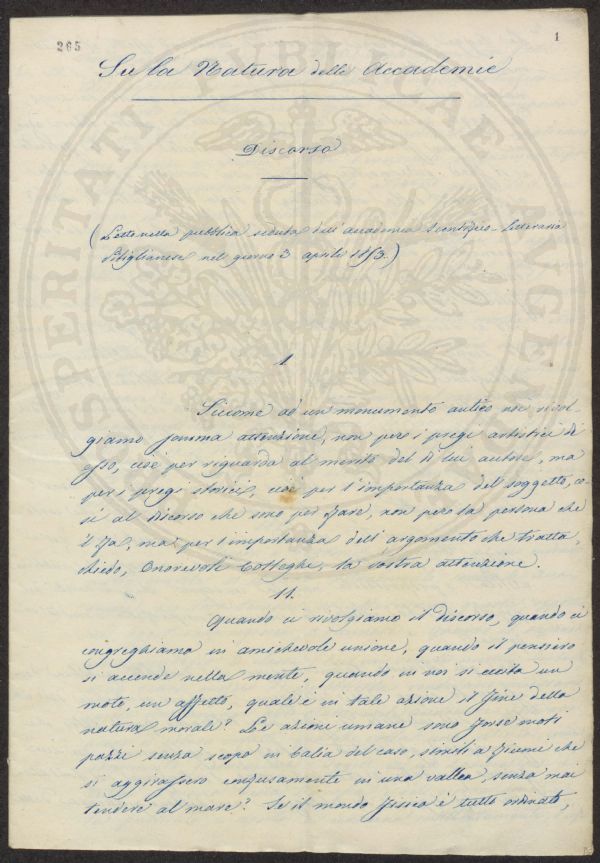 265
1
Su la Natura delle Accademie
Discorso
(Letto nella pubblica seduta dell'Accademia Scientifico-Letteraria
Pitiglianese nel giorno 3 aprile 1853.)
1.
Siccome ad un monumento antico noi rivol-
giamo somma attenzione, non per i pregi artistici di
esso, cioè per riguardo al merito del di lui autore, ma
per i pregi storici, cioè per l'importanza del soggetto, co-
sì al discorso che sono per fare, non per la persona che
il fa, ma per l'importanza dell'argomento che tratta,
chiedo, Onorevoli Colleghi, la vostra attenzione.
11.
Quando ci rivolgiamo il discorso, quando ci
congreghiamo in amichevole unione, quando il pensiero
si accende nella mente, quando in noi si eccita un
moto, un affetto, quale è in tale azione il fine della
natura morale? Le azioni umane sono forse moti
pazzi senza scopo in balìa del caso, simili a fiumi che
si aggirassero confusamente in una vallea, senza mai
tendere al mare? Se il mondo fisico è tutto ordinato,